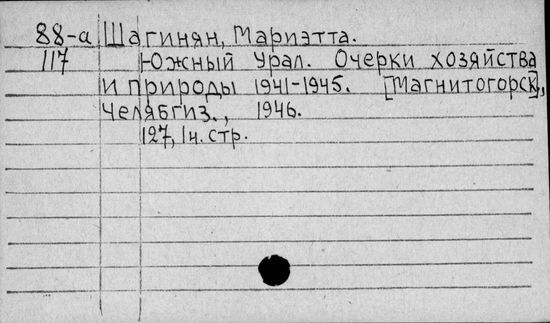 88-а Шагинян, Мариэтта.
117 Южный Урал. Очерки хозяйства
и природы 1941-1945. [Магнитогорск],
Челябгиз., 1946.
127, 1н. стр.